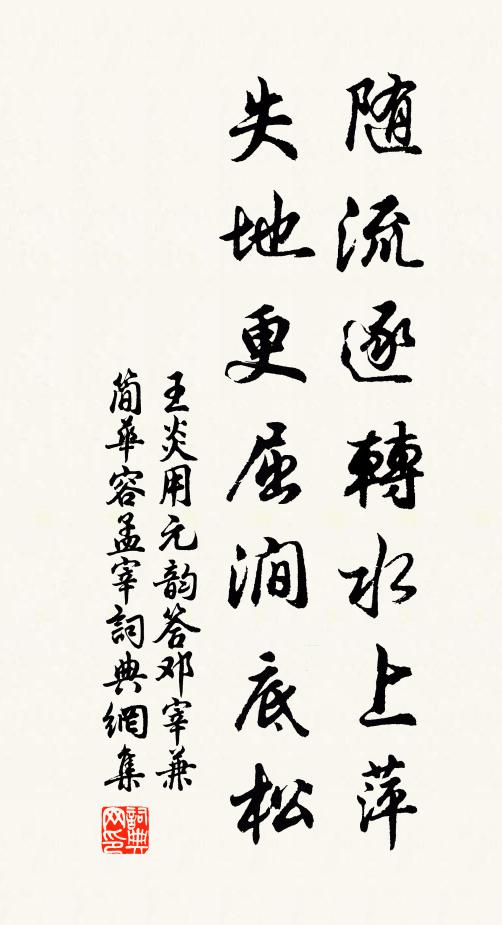 随流逐轉水上萍
失地更屈澗底松
王炎用元韵答邓宰兼
简華容孟宰詞典網集
詞典网印